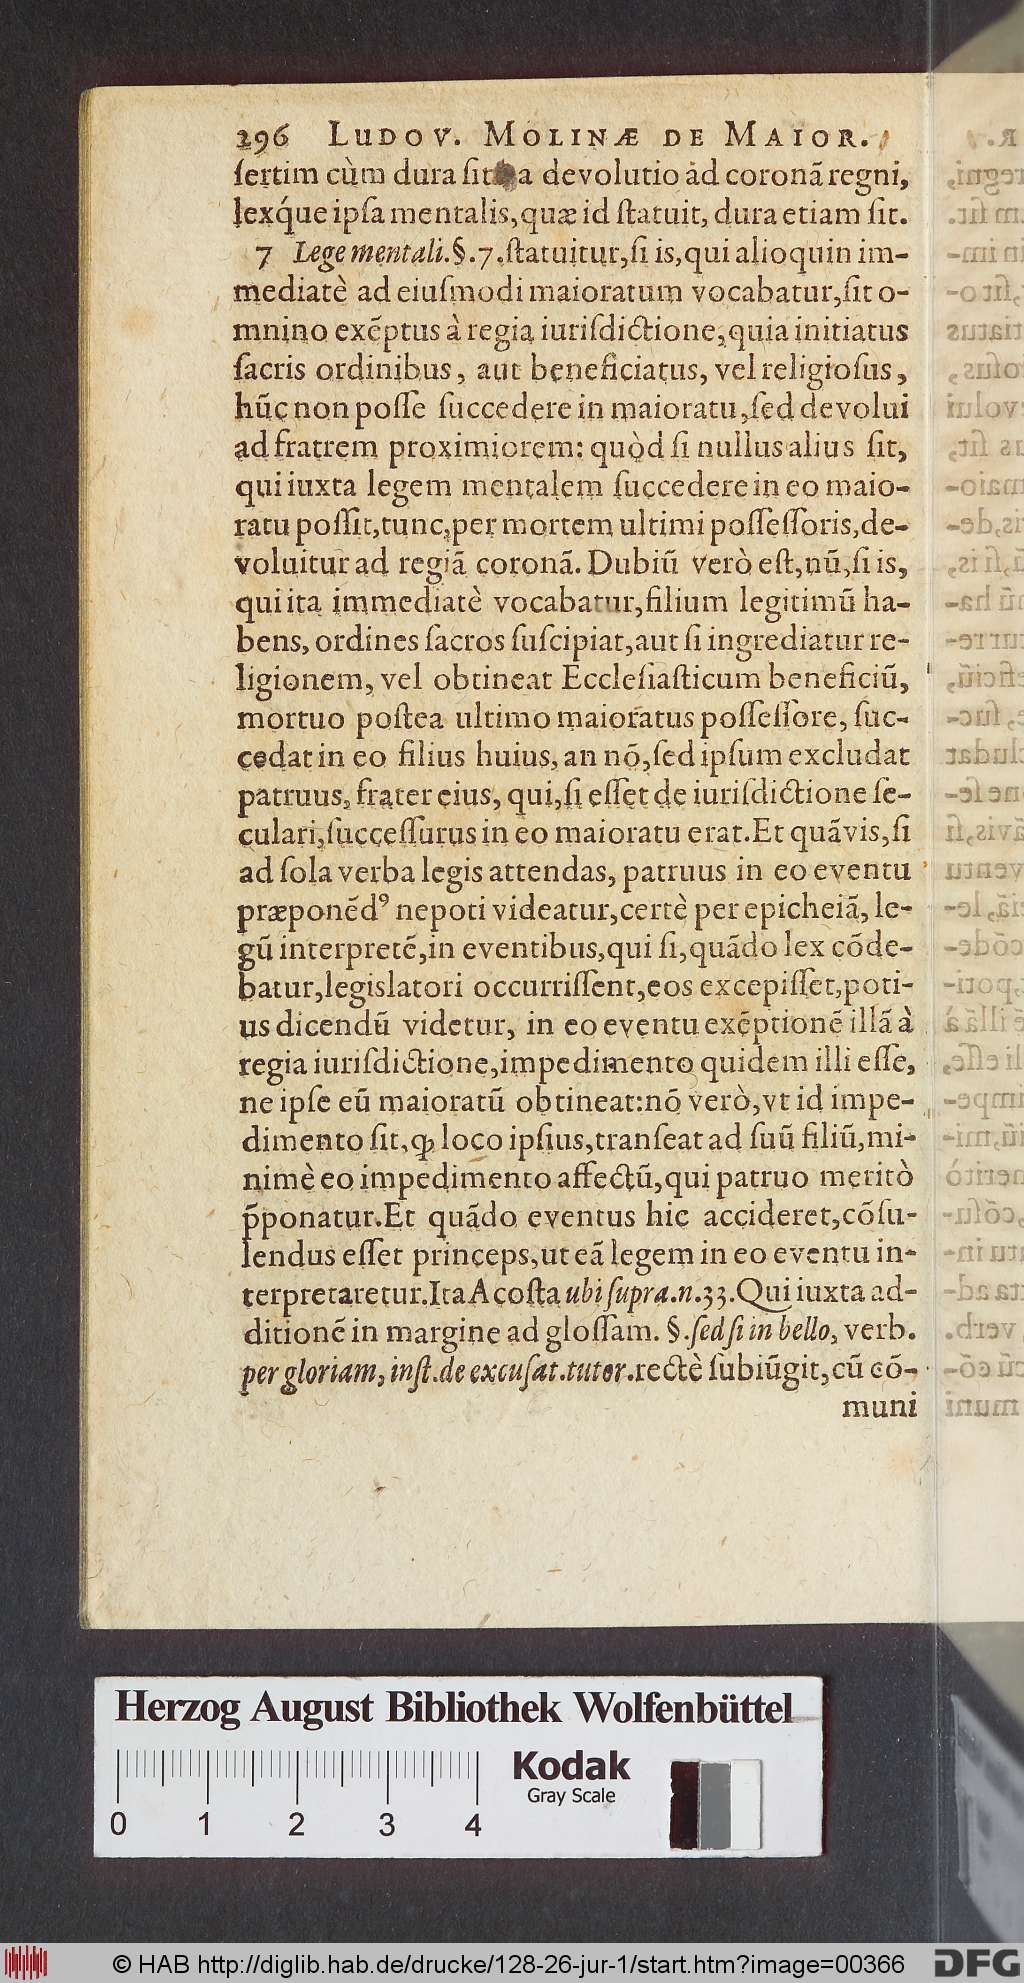 296 LUDOV. MOLINÆ DE MAIOR.
ſertim cùm dura ſit a devolutio ad coronã regni,
lexq́ue ipſa mentalis, quæ id ſtatuit, dura etiam ſit.
7 Lege mentali. §. 7. ſtatuitur, ſi is, qui alioquin im-
mediatè ad eiuſmodi maioratum vocabatur, ſit o-
mnino exẽptus à regia iuriſdictione, quia initiatus
ſacris ordinibus, aut beneficiatus, vel religioſus,
hũc non poſſe ſuccedere in maioratu, ſed devolui
ad fratrem proximiorem: quòd ſi nullus alius ſit,
qui iuxta legem mentalem ſuccedere in eo maio-
ratu poſſit, tunc, per mortem ultimi poſſeſſoris, de-
voluitur ad regiã coronã. Dubiũ verò eſt, nũ, ſi is,
qui ita immediatè vocabatur, filium legitimũ ha-
bens, ordines ſacros ſuſcipiat, aut ſi ingrediatur re-
ligionem, vel obtineat Eccleſiaſticum beneficiũ,
mortuo poſtea ultimo maioratus poſſeſſore, ſuc-
cedat in eo filius huius, an nõ, ſed ipſum excludat
patruus, frater eius, qui, ſi eſſet de iuriſdictione ſe-
culari, ſucceſſurus in eo maioratu erat. Et quãvis, ſi
ad ſola verba legis attendas, patruus in eo eventu
præponẽdꝰ nepoti videatur, certè per epicheiã, le-
gũ interpretẽ, in eventibus, qui ſi, quãdo lex cõde-
batur, legislatori occurriſſent, eos excepiſſet, poti-
us dicendũ videtur, in eo eventu exẽptionẽ illã à
regia iuriſdictione, impedimento quidem illi eſſe,
ne ipſe eũ maioratũ obtineat: nõ verò, vt id impe-
dimento ſit, ꝙ loco ipſius, tranſeat ad ſuũ filiũ, mi-
nimè eo impedimento affectũ, qui patruo meritò
p̃ponatur. Et quãdo eventus hic accideret, cõſu-
lendus eſſet princeps, ut eã legem in eo eventu in-
terpretaretur. Ita Acoſta ubi ſupra. n. 33. Qui iuxta ad-
ditionẽ in margine ad gloſſam. §. ſed ſi in bello, verb.
per gloriam, inſt. de excuſat. tutor. rectè ſubiũgit, cũ cõ-
muni
Herzog August Bibliothek Wolfenbüttel
Kodak
Gray Scale
0 1 2 3 4
© HAB http://diglib.hab.de/drucke/128-26-jur-1/start.htm?image=00366
DFG